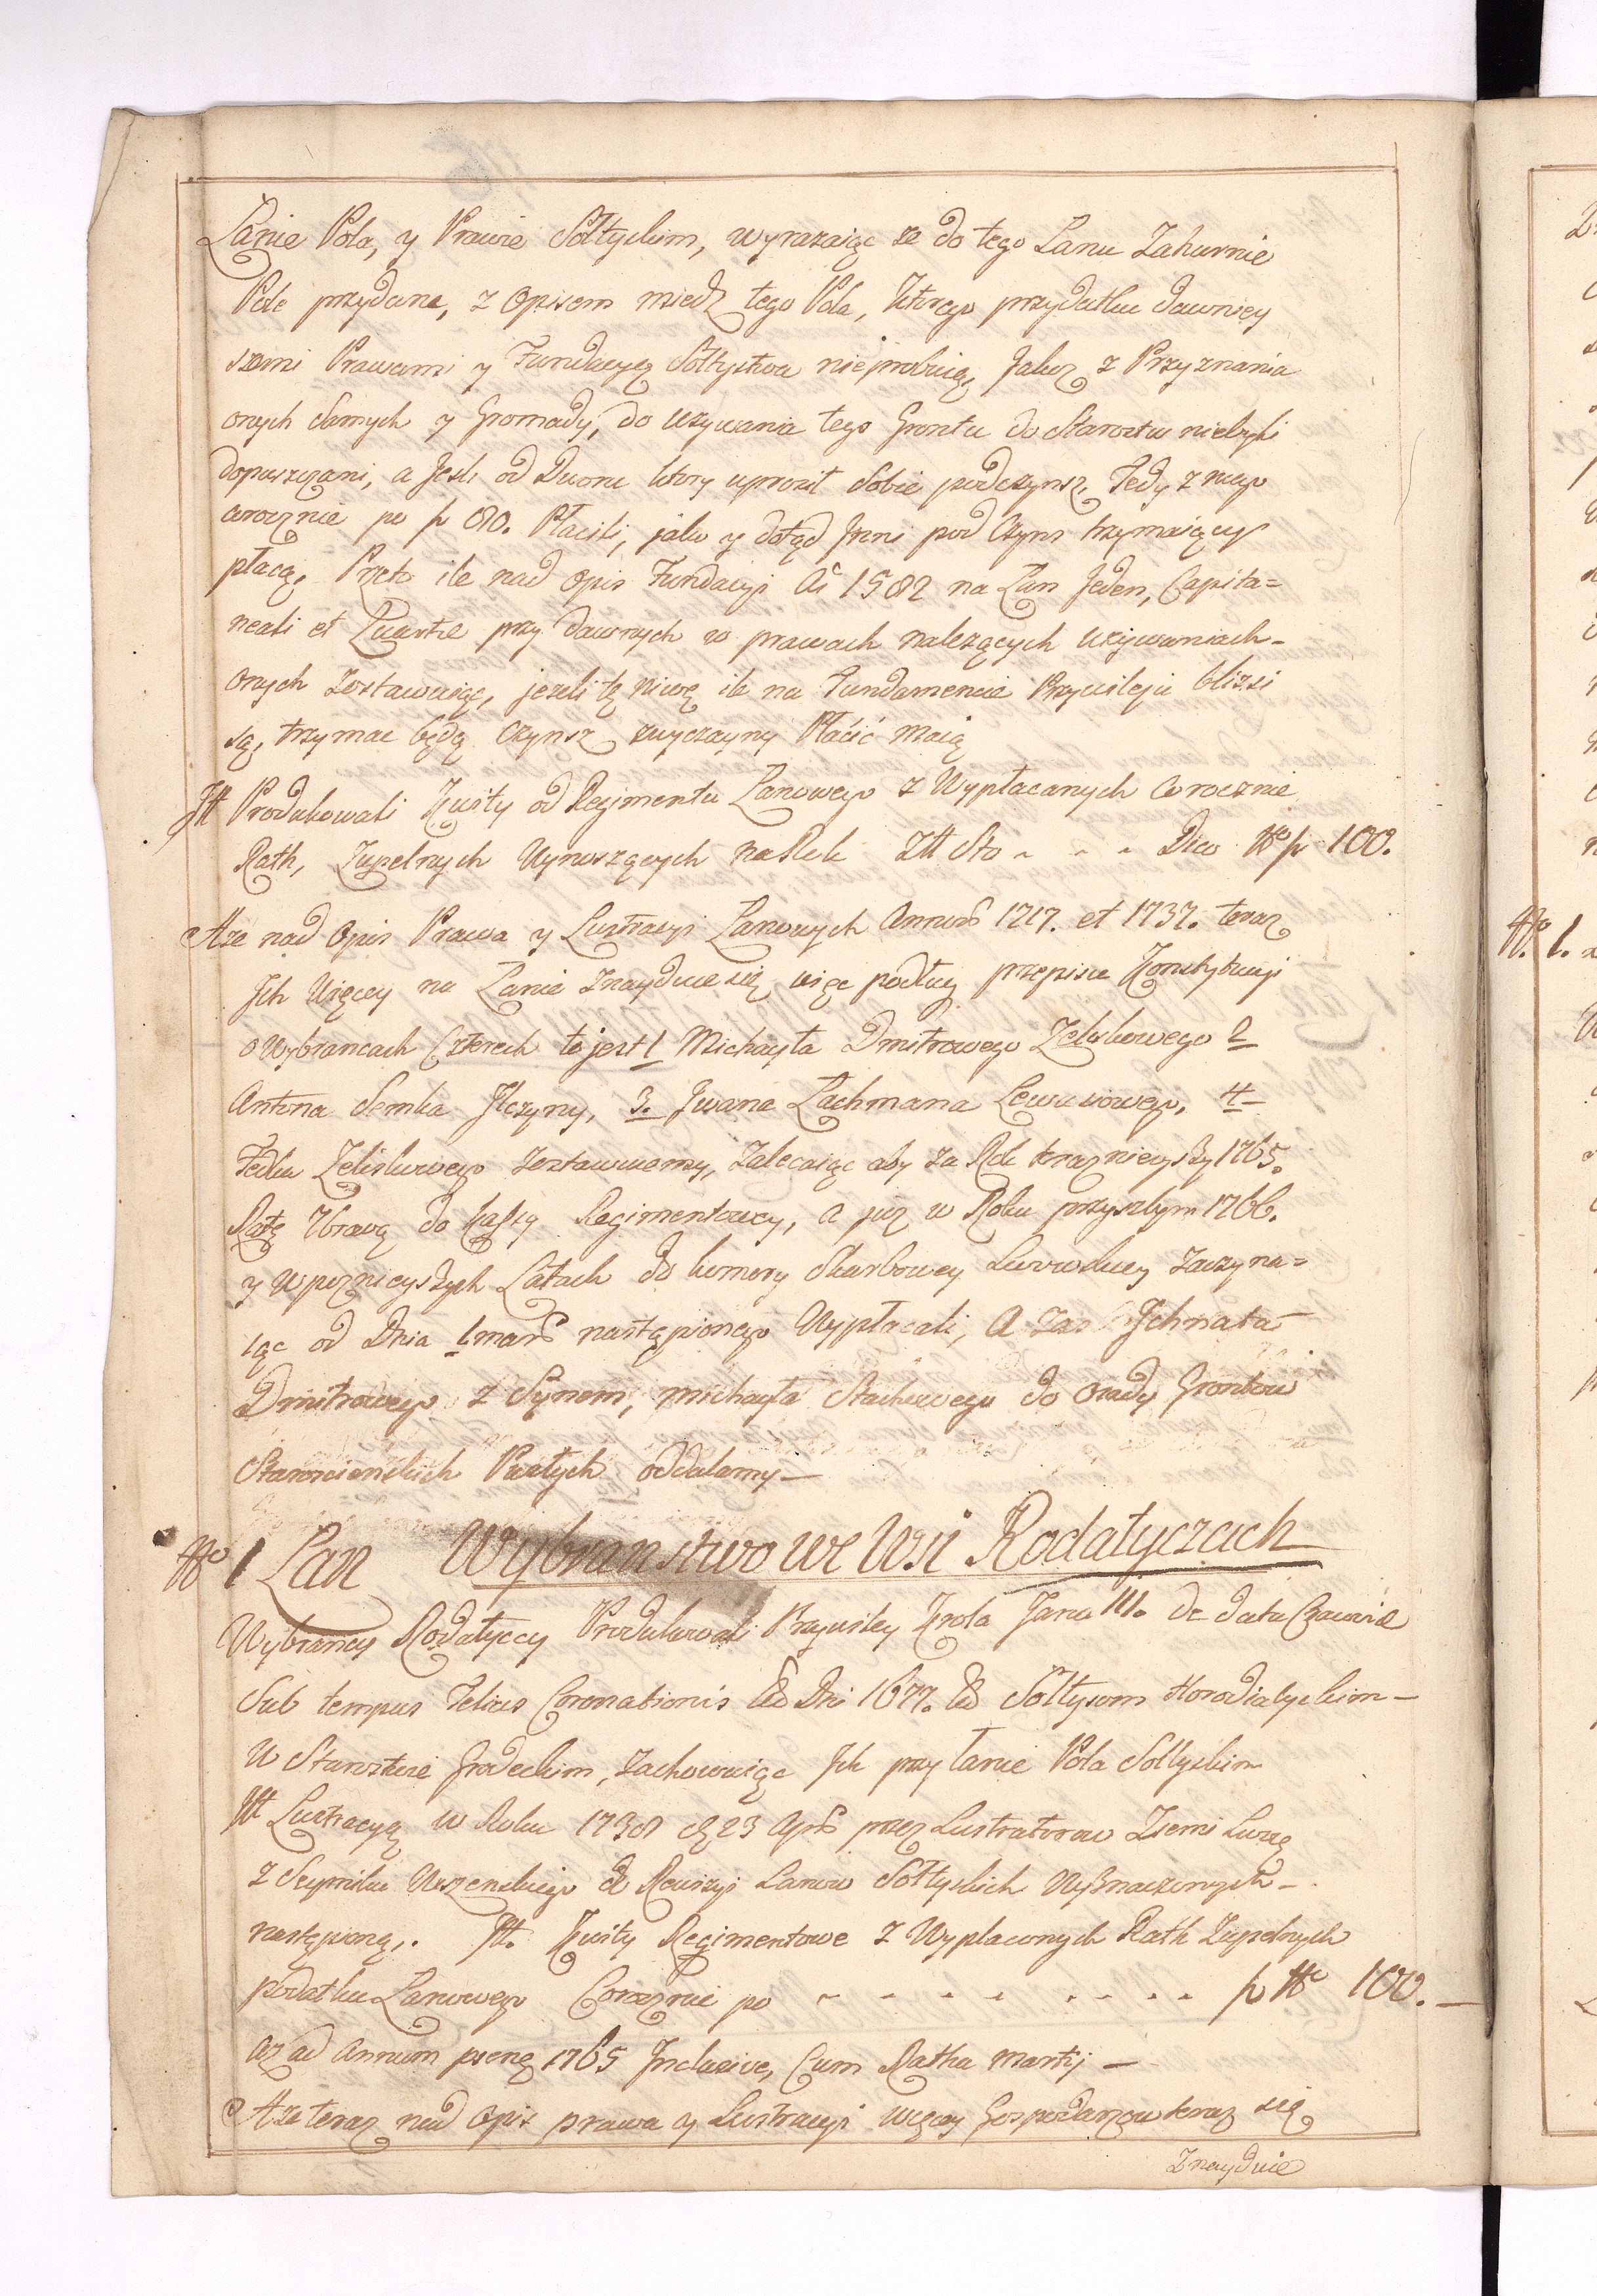 Łanie Pola, y Prawie Sołtyskim, wyrazaiąc ze do tego Łanu Zahurnie
Pole przydane, z Opisem miedz tego Pola, ktorego przydatku dawniey
szemi Prawami y Fundacyą Sołtystwa nieprobuią, Jakoz z Przyznania
onych samych y Gromady, do uzywania tego Grontu do Starostw nie byli
dopuszczani, a Jesli od Dworu ktory uprosił sobie podczynsz, Tedy z niego
corocznie po p 80. Płacili, jako y dotąd Inni pod Czyns trzymaiący
płacą, Przeto ile nad opis Fundacyi A° 1582 na Łan Jeden, Capita=
neali et Quartae przy dawnych w prawach nalezących uzywaniach-
onych zostawuiąc, jezeli tę niwę ile na Fundamencie Przywileju blizsi
są, trzymac będą Czynsz zwyczayny Płacić maią
It Produkowali Kwity od Regimentu Łanowego z Wypłacanych corocznie
Rath, Zupelnych Wynoszących na Rok Złł Sto - - - Dico No p 100.
A ze nad Opis Prawa y Lustracyi Łanowych Annorō 1717. et 1737. teraz
Ich Więcey na Łanie znayduie się, więc podług przepisu Konstytucyi
o Wybrancach Czterech to jest 1 Michayła Dmitrowego Zeliskowego 2
Antona Semka Ilczyny, 3. Jwana Lachmana 4
Fedka Zeliskowego zostawuiemy, zalecaiąc aby za Rok teraznieyszy 1765.
Ratę do kassy Regimentowey, a juz w Roku przyszłym 1766.
y w poznieyszych Latach do komory Skarbowey Lwowskiey zaczyna=
iąc od Dnia 1 mars następionego Wypłacali, A zas Ichnata
Dmitrowego z Synem, Michayła Stachowego do osady Grontow
Staroscienskich Pustych oddalamy—
No 1 Łan Wybranstwo we Wsi Rodatyczach
Wybrancy Rodatyccy Produkowali Przywiley Krola Jana III. de data Cracoviae
Sub tempus Felicis Coronationis A° Dni 1677. Sołtysom Horodiatyckim—
W Starostwie Grodeckim, zachowuiąc Ich przy Łanie Pola Soltyskim
It Lustracyą w Roku 1738 d 23 Apr przez Lustratorow Ziemi Lwow
z Seymiku Wiszenskiego do Rewizyi Łanow Sołtyskich Wyznaczonych—
następioną,. It. Kwity Regimentowe z Wypłaconych Rath Zupelnych
podatku Łanowego Corocznie po - - - - - - - - - p No 100.—
az ad Annum psens 1765 Inclusive, Cum Ratha Martij —
A ze teraz nad Opis prawa y Lustracyi więcey Gospodarzow teraz się
Znayduie